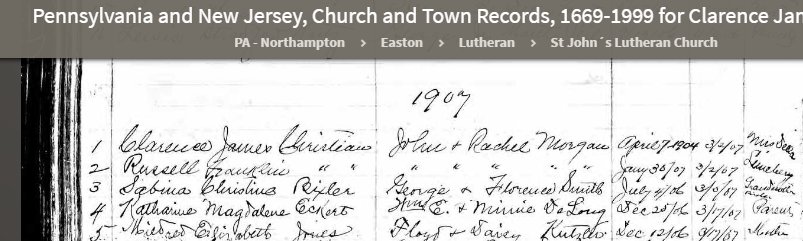 Pennsylvania and New Jersey, Church and Town Records, 1669-1999 for Clarence Jam
PA - Northampton > Easton > Lutheran > St John´s Lutheran Church
1907
1 Clarence James Christian John & Rachel Morgan April 7-1904 3/2/07
2 Russell Franklin " " " " " " Jany 30/07 3/2/07
3 Sabina Christine Bixler George & Florence Smith July 4/06
4 Katharine Magdalene Eckert Wm E. & Minnie DeLong Dec 25/06 3/17/07 Parents
5 Mildred Elizabeth Jones Floyd & Daisy Kutzler Dec 12/06